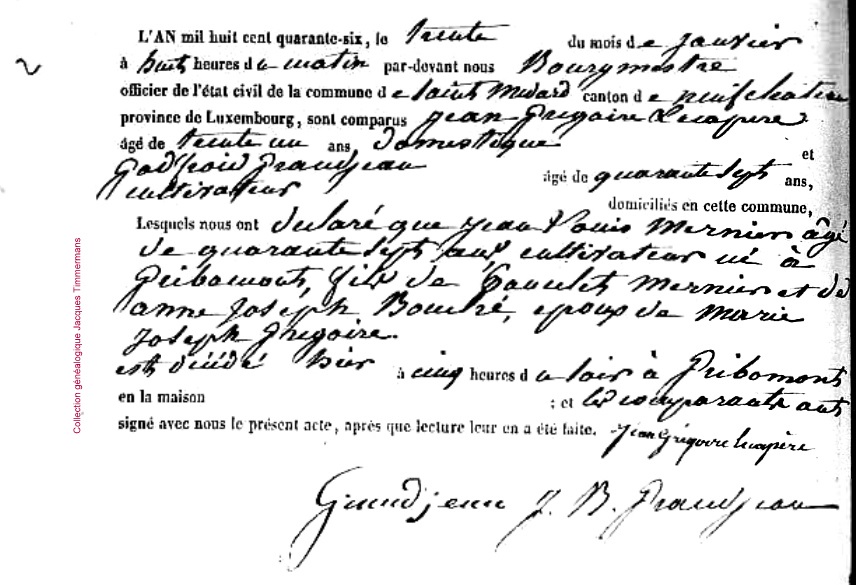 2
L'AN mil huit cent quarante-six, le trente du mois de janvier
à huit heures du matin par-devant nous Bourgmestre
officier de l'état civil de la commune de Saint Médard canton de neufchateau
province de Luxembourg, sont comparus Jean Gregoire Lecapere
âgé de trente un ans, domestique et
Godfroid Grandjean âgé de quarante sept ans,
cultivateur domiciliés en cette commune,
Lesquels nous ont déclaré que Jean Louis Mernier âgé
de quarante sept ans, cultivateur né à
Gribomont, fils de Mernier et de
anne Joseph Bouché, epoux de Marie
Joseph Gregoire.
est décédé hier à cinq heures du soir à Gribomont
en la maison ; et les comparants ont
signé avec nous le présent acte, après que lecture leur en a été faite. Jean Grégoire Lecapère
Grandjean J. B. Grandjean
Collection généalogique Jacques Timmermans